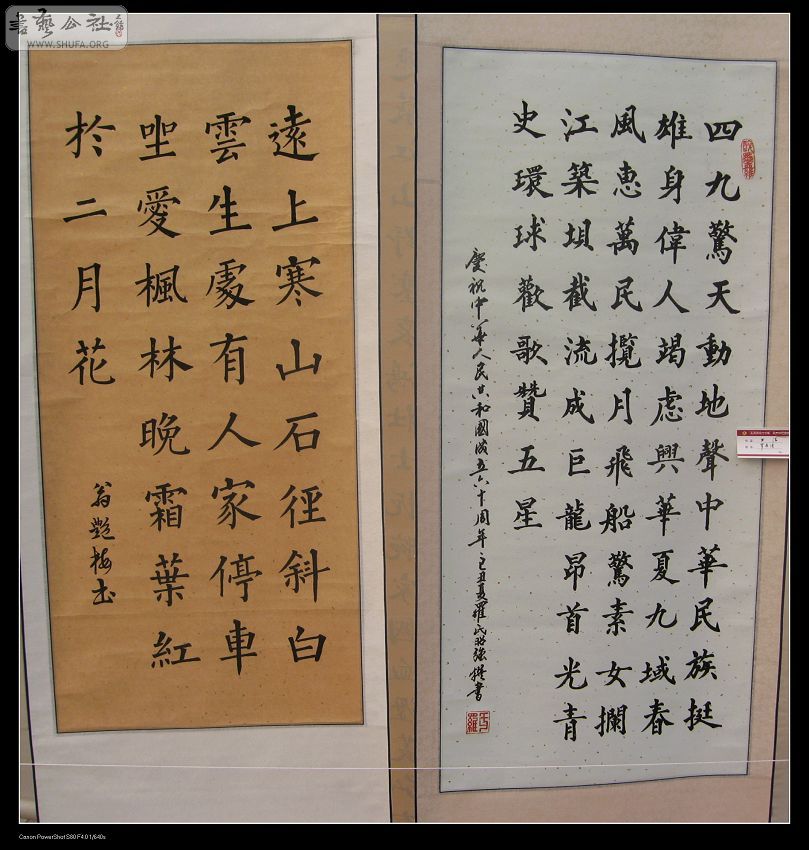 書藝公社
WWW.SHUFA.ORG
四九驚天動地聲中華民族挺
雄身偉人竭慮興華夏九域春
風惠萬民攬月飛船驚素女攔
江築垻截流成巨龍昂首光青
史環球歡歌贊五星
慶祝中華人民共和國成立六十周年己丑夏羅氏昭強撰書
遠上寒山石徑斜白
雲生處有人家停車
坐愛楓林晚霜葉紅
於二月花
翁艷梅书
Canon PowerShot S80 F4.0 1/640s